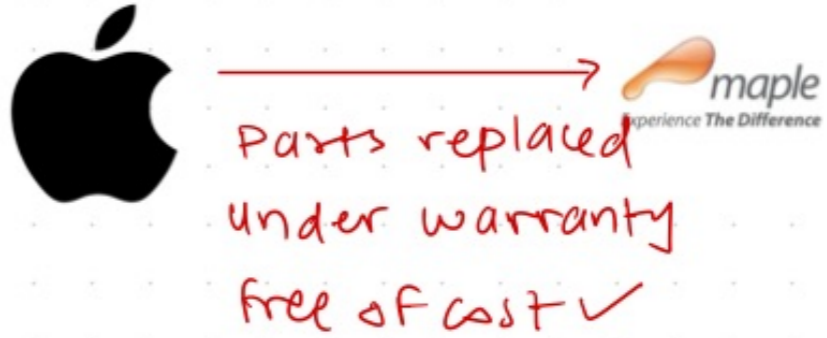 maple
Experience The Difference
Parts replaced
under warranty
free of cost ✓